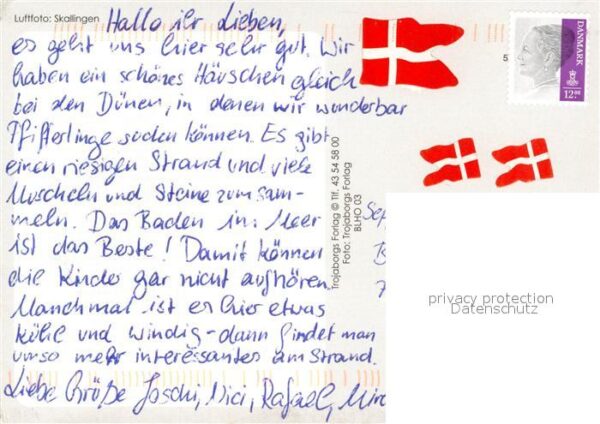 Luftfoto: Skallingen
Hallo ihr Lieben,
es geht uns hier sehr gut. Wir
haben ein schönes Häuschen gleich
bei den Dünen, in denen wir wunderbar
Pfifferlinge suchen können. Es gibt
einen riesigen Strand und viele
Muscheln und Steine zum sam-
meln. Das Baden im Meer
ist das Beste! Damit können
die Kinder gar nicht aufhören.
Manchmal ist es hier etwas
kühl und windig - dann findet man
umso mehr interessantes am Strand.
Liebe Grüße Joschi, Mici, Rafael,
Trojaborgs Forlag © Tlf. 43 54 58 00
Foto: Trojaborgs Forlag
BLHO 03
5
DANMARK
12.00
privacy protection
Datenschutz